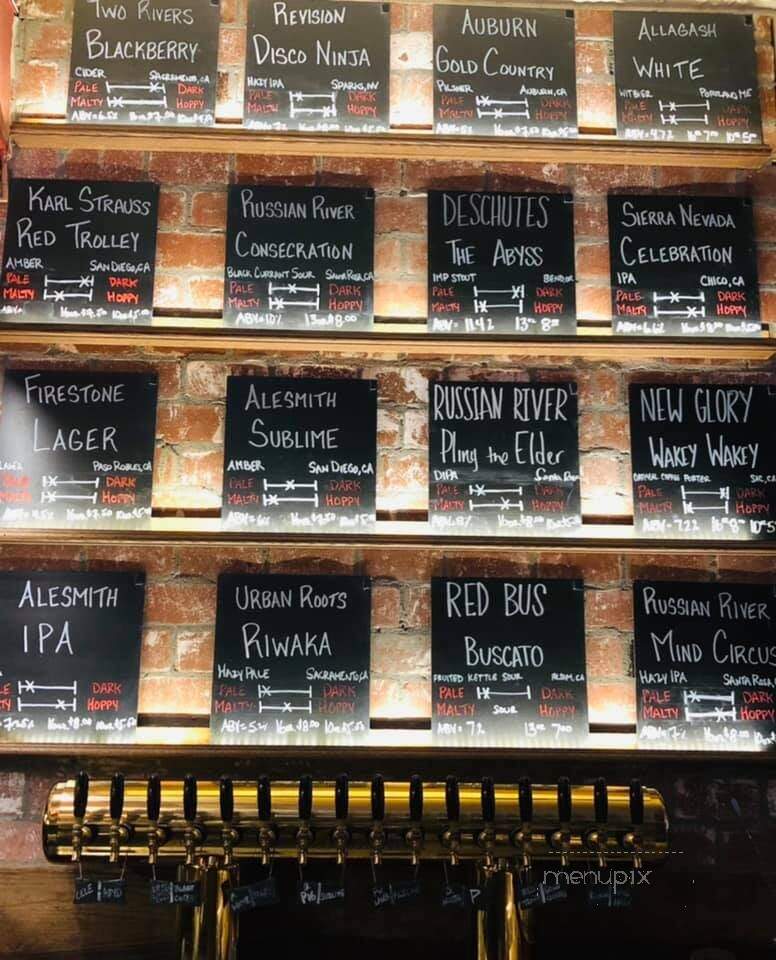 TWO RIVERS
BLACKBERRY
CIDER SACRAMENTO, CA
PALE DARK
MALTY HOPPY
REVISION
DISCO NINJA
HAZY IPA SPARKS, NV
PALE DARK
MALTY HOPPY
AUBURN
GOLD COUNTRY
PILSNER AUBURN, CA
PALE DARK
MALTY HOPPY
ALLAGASH
WHITE
WITBIER PORTLAND, ME
PALE DARK
MALTY HOPPY
KARL STRAUSS
RED TROLLEY
AMBER SAN DIEGO, CA
PALE DARK
MALTY HOPPY
RUSSIAN RIVER
CONSECRATION
BLACK CURRANT SOUR SANTA ROSA, CA
PALE DARK
MALTY HOPPY
ABV= 10%
DESCHUTES
THE ABYSS
IMP STOUT BEND, OR
PALE DARK
MALTY HOPPY
SIERRA NEVADA
CELEBRATION
IPA CHICO, CA
PALE DARK
MALTY HOPPY
FIRESTONE
LAGER
PASO ROBLES, CA
PALE DARK
MALTY HOPPY
ALESMITH
SUBLIME
AMBER SAN DIEGO, CA
PALE DARK
MALTY HOPPY
RUSSIAN RIVER
Pliny the Elder
DIPA
PALE DARK
MALTY HOPPY
NEW GLORY
WAKEY WAKEY
OATMEAL COFFEE PORTER SAC, CA
PALE DARK
MALTY HOPPY
ALESMITH
IPA
DARK
HOPPY
URBAN ROOTS
RIWAKA
HAZY PALE SACRAMENTO, CA
PALE DARK
MALTY HOPPY
RED BUS
BUSCATO
FRUITED KETTLE SOUR
PALE DARK
MALTY SOUR HOPPY
RUSSIAN RIVER
MIND CIRCUS
HAZY IPA SANTA ROSA,
PALE DARK
MALTY HOPPY
menupix